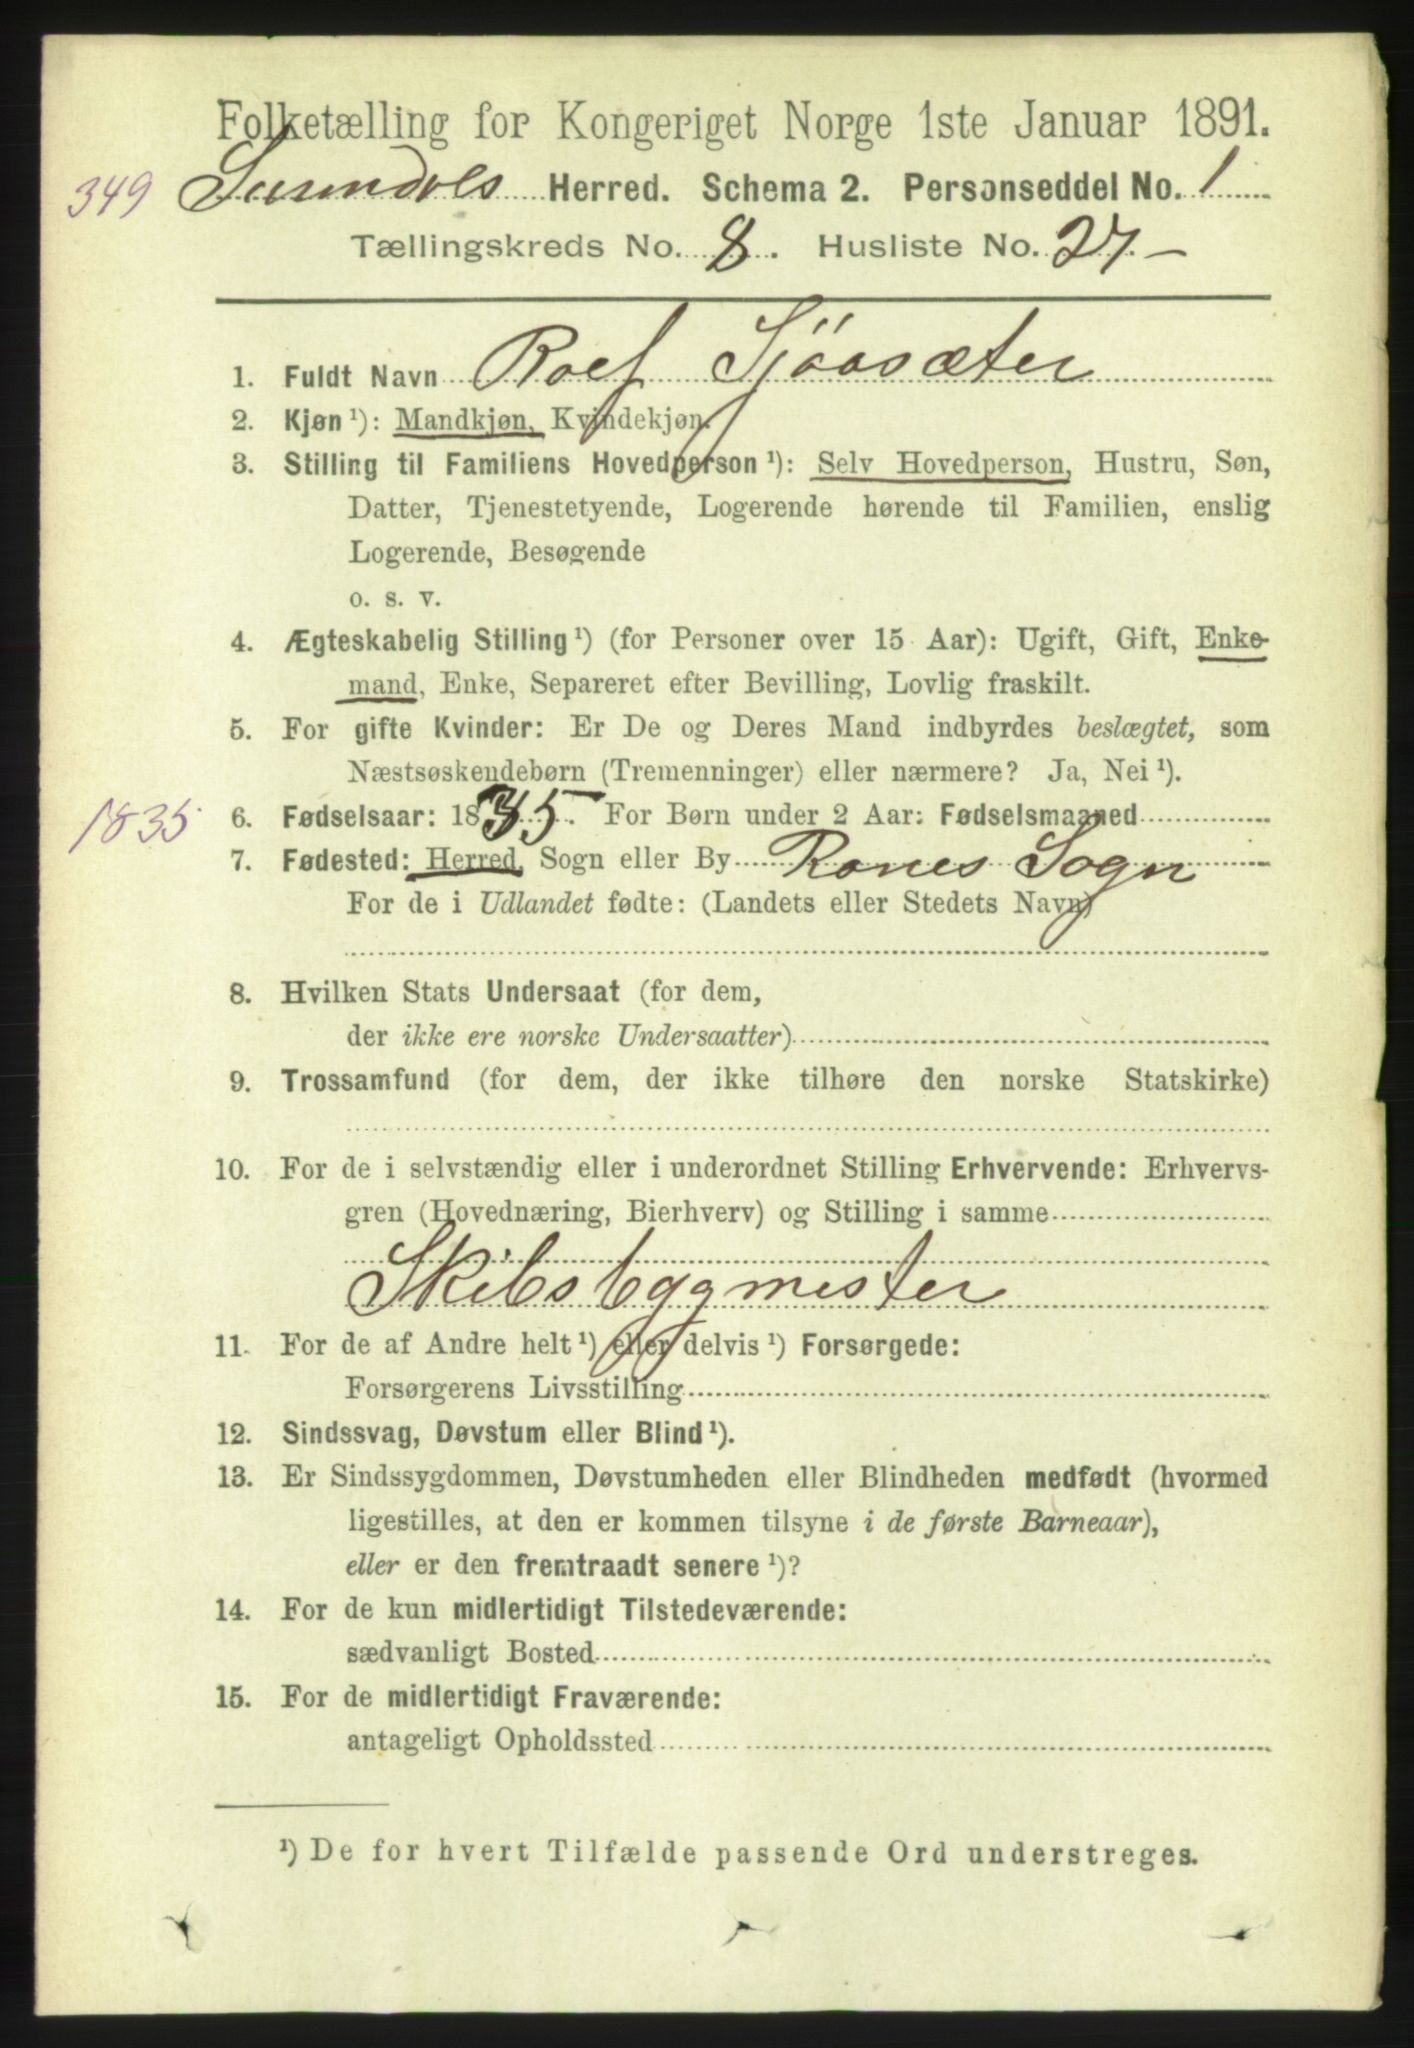 Folketælling for Kongeriget Norge 1ste Januar 1891.
349 Surendals Herred. Schema 2. Personseddel No. 1
Tællingskreds No. 8. Husliste No. 27.–
1. Fuldt Navn Roef Sjöasæter
2. Kjøn ¹): Mandkjøn, Kvindekjøn.
3. Stilling til Familiens Hovedperson ¹): Selv Hovedperson, Hustru, Søn,
Datter, Tjenestetyende, Logerende hørende til Familien, enslig
Logerende, Besøgende
o. s. v.
4. Ægteskabelig Stilling ¹) (for Personer over 15 Aar): Ugift, Gift, Enke-
mand, Enke, Separeret efter Bevilling, Lovlig fraskilt.
5. For gifte Kvinder: Er De og Deres Mand indbyrdes beslægtet, som
Næstsøskendebørn (Tremenninger) eller nærmere? Ja, Nei ¹).
1835 6. Fødselsaar: 1835. For Børn under 2 Aar: Fødselsmaaned
7. Fødested: Herred, Sogn eller By Ranes Sogn
For de i Udlandet fødte: (Landets eller Stedets Navn)
8. Hvilken Stats Undersaat (for dem,
der ikke ere norske Undersaatter)
9. Trossamfund (for dem, der ikke tilhøre den norske Statskirke)
10. For de i selvstændig eller i underordnet Stilling Erhvervende: Erhvervs-
gren (Hovednæring, Bierhverv) og Stilling i samme
Skibsbyggmester
11. For de af Andre helt ¹) eller delvis ¹) Forsørgede:
Forsørgerens Livsstilling
12. Sindssvag, Døvstum eller Blind ¹).
13. Er Sindssygdommen, Døvstumheden eller Blindheden medfødt (hvormed
ligestilles, at den er kommen tilsyne i de første Barneaar),
eller er den fremtraadt senere ¹)?
14. For de kun midlertidigt Tilstedeværende:
sædvanligt Bosted
15. For de midlertidigt Fraværende:
antageligt Opholdssted
¹) De for hvert Tilfælde passende Ord understreges.